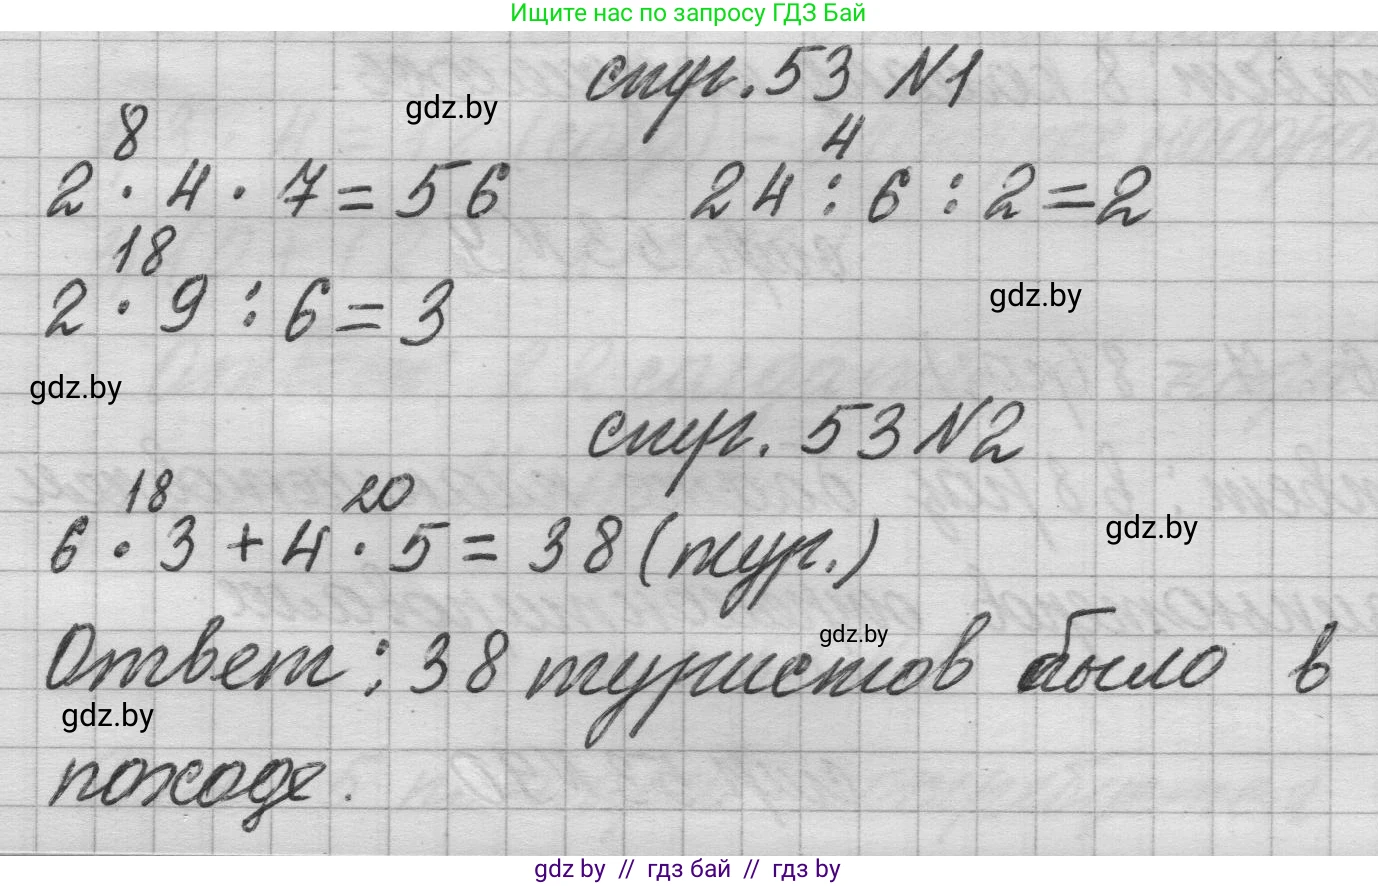 Ищите нас по запросу ГДЗ Бай
стр. 53 №1
gdz.by
8 4
2 · 4 · 7 = 56 24 : 6 : 2 = 2
18
2 · 9 : 6 = 3
gdz.by
gdz.by
стр. 53 №2
18 20
6 · 3 + 4 · 5 = 38 (тур.)
gdz.by
gdz.by
Ответ: 38 туристов было в
gdz.by
походе.
gdz.by // гдз бай // гдз by